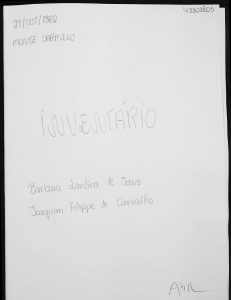 27/OUT/1862
MONTE CARMELO
INVENTÁRIO
Barbara Landina de Jesus
Joaquim Filippe de Carvalho